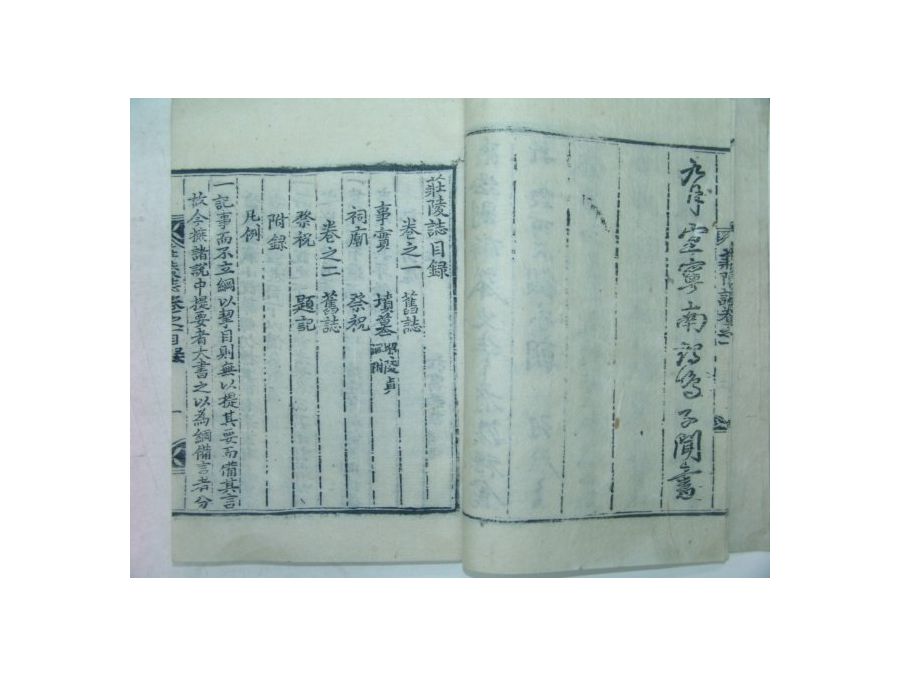 莊陵誌卷之一
九月宜寧南鶴鳴子聞書
莊陵誌目錄
卷之一 舊誌
事實 墳墓 陵貞附
祠廟 祭祝
卷之二 舊誌
祭祝 題記
附錄
凡例
一記事而不立綱以挈目則無以提其要而備其言
故今摭諸說中提要者大書之以為綱備言者分
莊陵誌卷之目錄 一